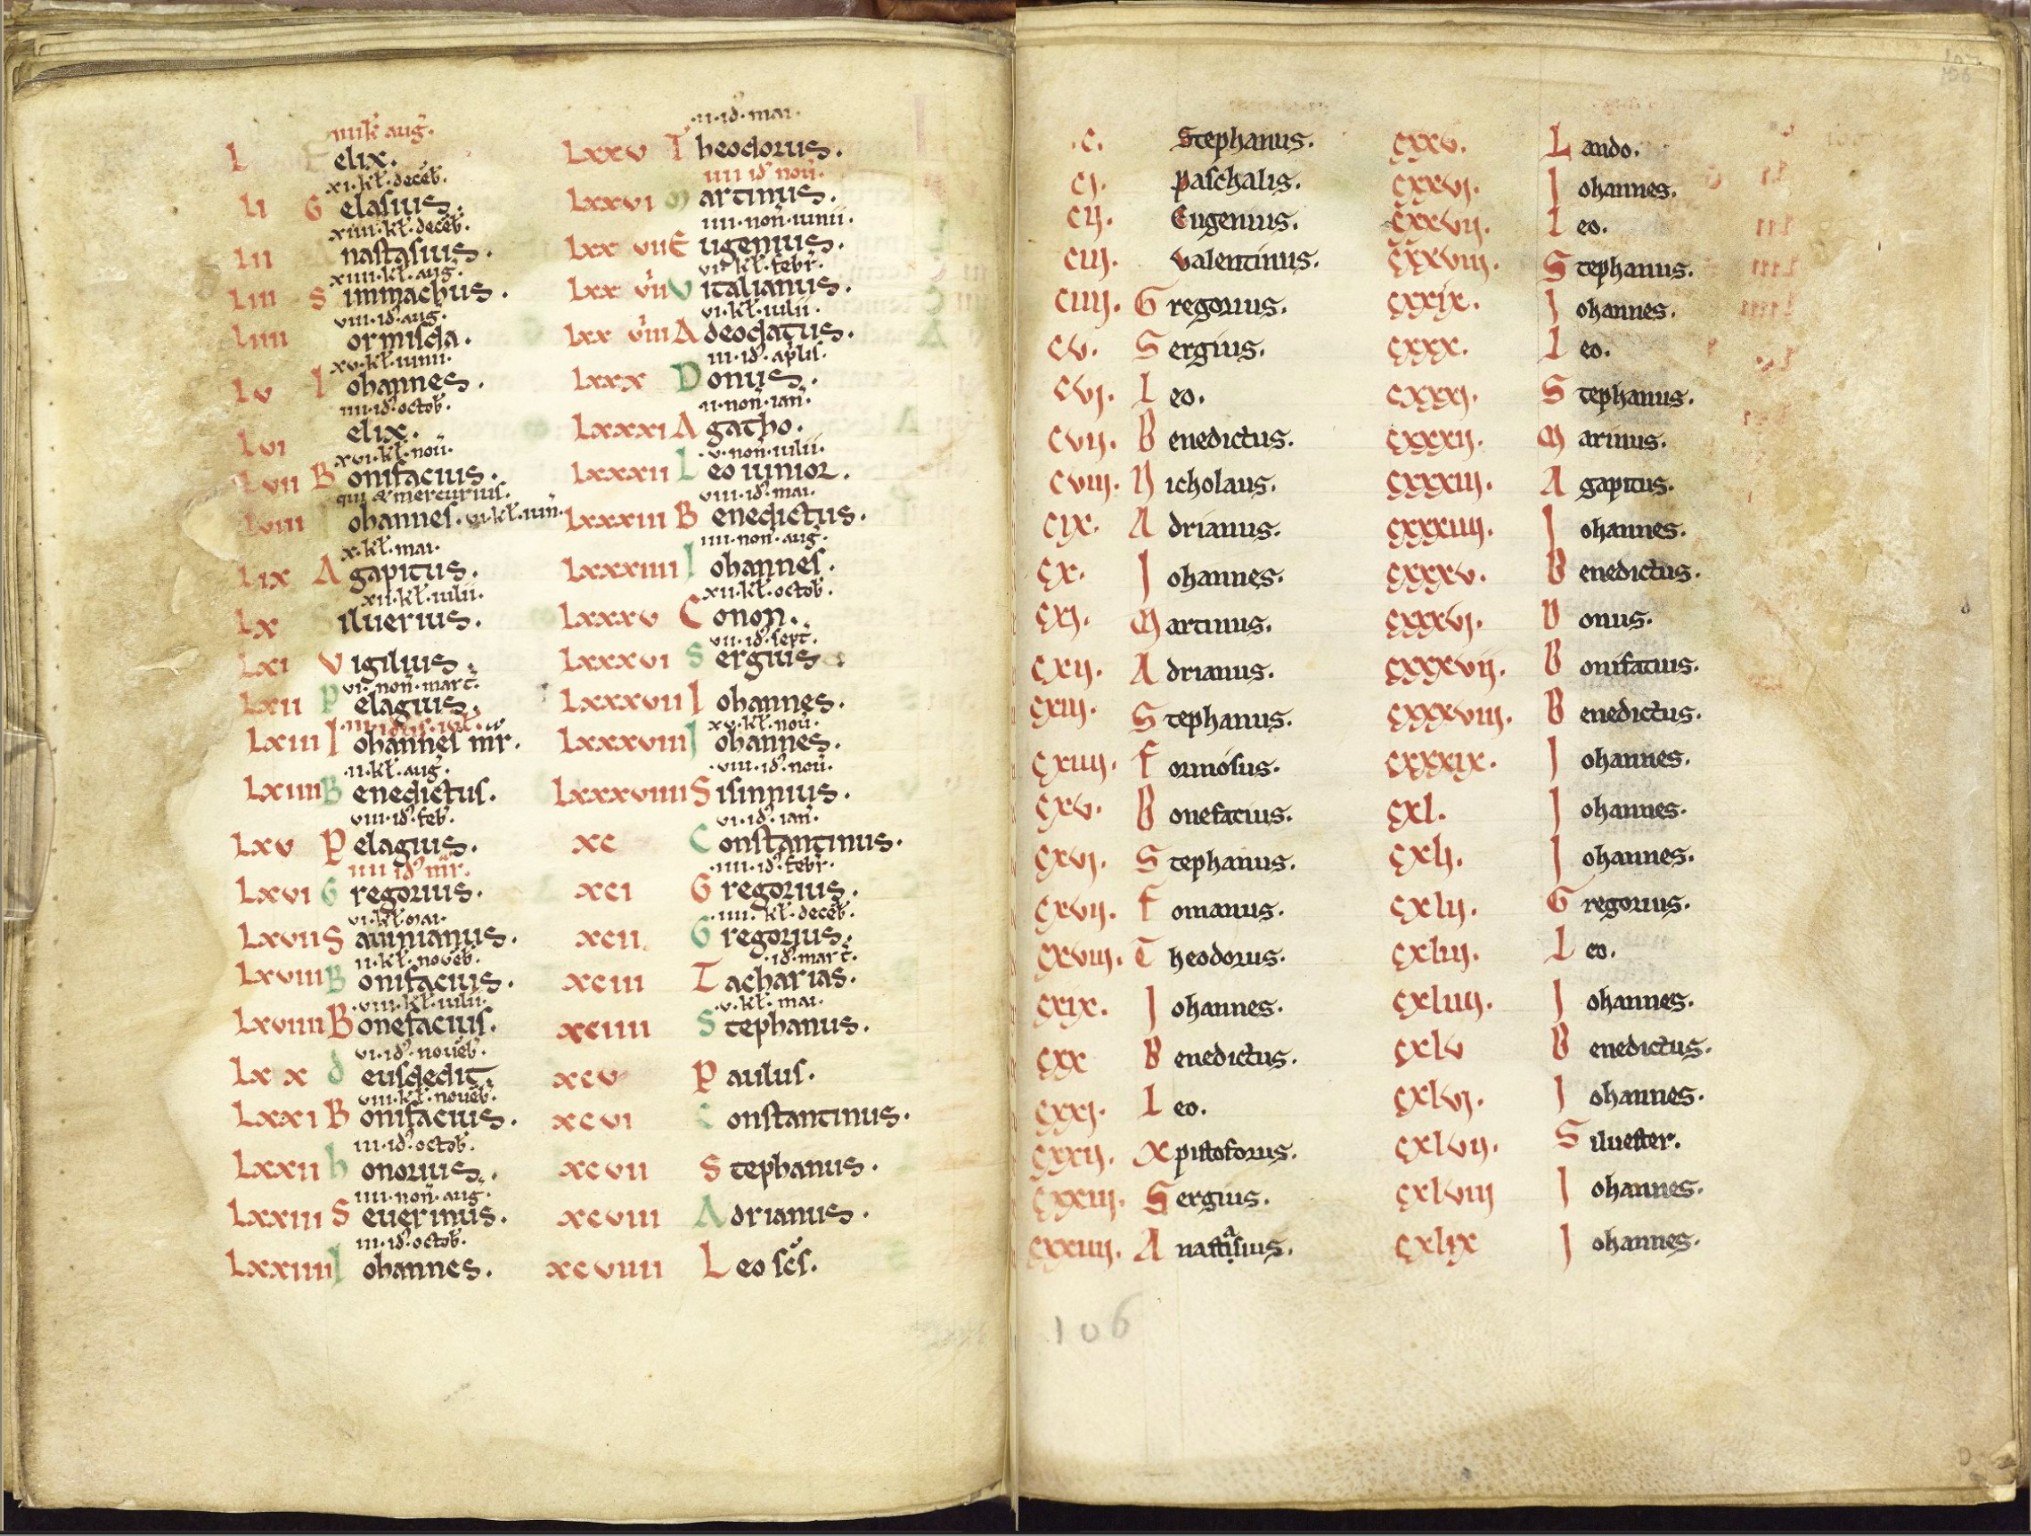 iiii kł aug̃.
L F elix.
xi·kł·decẽb.
Li G elasius.
xiii·kł·decẽb.
Lii A nastasius.
xiiii·kł·aug̃.
Liii S immachus.
viii·id᾽·aug.
Liiii ormisda.
xv·kł·iunii.
Lv I ohannes.
iiii·id᾽·octob̃.
Lvi elix.
xvi·kł·noũ.
Lvii B onifacius.
qui & mercurius.
Lviii I ohannes. vi·kł·iun̄.
x·kł·mai.
Lix A gapitus.
xii·kł·iulii.
Lx S iluerius.
Lxi V igilius.
vi·noñ·marc̃.
Lxii P elagius.
Lxiii I ohannes mr̄.
ii·kł·aug̃.
Lxiiii B enedictus.
viii·id᾽·feb̃.
Lxv P elagius.
iiii id᾽ mr̃.
Lxvi G regorius.
vi·kł·mai.
Lxvii S auinianus.
ii·kł·nouẽb.
Lxviii B onifacius.
viii·kł·iulii.
Lxviiii B onefacius.
vi·id᾽·nouẽb.
Lxx d eusdedit.
viii·kł·nouẽb.
Lxxi B onifacius.
iii·id᾽·octob̃.
Lxxii h onorius.
iiii·noñ·aug̃.
Lxxiii S euerinus.
iii·id᾽·octob̃.
Lxxiiii I ohannes.
·ii·id᾽·mai·
Lxxv T heodorus.
iiii id᾽ noũ.
Lxxvi M artinus.
iiii·noñ·iunii.
Lxxvii E ugenius.
vi·kł·febr̃.
Lxxvii V italianus.
vi·kł·iulii.
Lxxviii A deodatus.
iii·id᾽·aplis̃.
Lxxx D onus.
ii·noñ·iañ.
Lxxxi A gatho.
v·noñ·iulii.
Lxxxii L eo iunior.
viii·id᾽·mai.
Lxxxiii B enedictus.
iiii·noñ·aug̃.
Lxxxiiii I ohannes.
xii·kł·octob̃.
Lxxxv C onon.
vii·id᾽·sept̃.
Lxxxvi S ergius.
Lxxxvii I ohannes.
xv·kł·noũ.
Lxxxviii I ohannes.
viii·id᾽·noũ.
Lxxxviiii S isinnius.
vi·id᾽·iañ.
xc C onstantinus.
iiii·id᾽·febr̃.
xci G regorius.
iiii·kł·decẽb.
xcii G regorius.
id᾽·marc̃.
xciii T acharias.
v·kł·mai.
xciiii S tephanus.
xcv P aulus.
xcvi C onstantinus.
xcvii S tephanus.
xcviii A drianus.
xcviiii L eo sc̄s.
·c. Stephanus.
cj. Paschalis.
cij. Eugenius.
ciij. Valentinus.
ciiij. G regorius.
cv. S ergius.
cvj. L eo.
cvij. B enedictus.
cviij. N icholaus.
cix. A drianus.
cx. J ohannes.
cxj. M artinus.
cxij. A drianus.
cxiij. S tephanus.
cxiiij. F ormosus.
cxv. B onefatius.
cxvj. S tephanus.
cxvij. F omanus.
cxviij. T heodorus.
cxix. J ohannes.
cxx B enedictus.
cxxj. L eo.
cxxij. X pistoforus.
cxxiij. S ergius.
cxxiiij. A nastasius.
cxxv. L ando.
cxxvj. J ohannes.
cxxvij. L eo.
cxxviij. S tephanus.
cxxix. J ohannes.
cxxx. L eo.
cxxxj. S tephanus.
cxxxij. M arinus.
cxxxiij. A gapitus.
cxxxiiij. J ohannes.
cxxxv. B enedictus.
cxxxvj. D onus.
cxxxvij. B onifatius.
cxxxviij. B enedictus.
cxxxix. J ohannes.
cxl. J ohannes.
cxlj. J ohannes.
cxlij. G regorius.
cxliij. L eo.
cxliiij. J ohannes.
cxlv B enedictus.
cxlvj. J ohannes.
cxlvij. S iluester.
cxlviij J ohannes.
cxlix J ohannes.
106